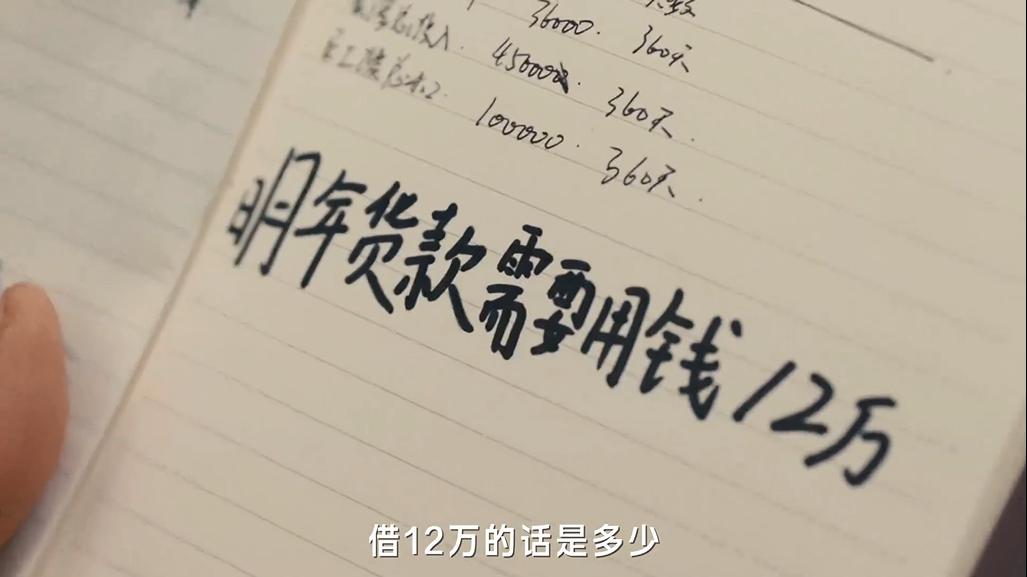 36000. 360天
450000. 360天.
100000. 360天.
明年货款需要用钱12万
借12万的话是多少